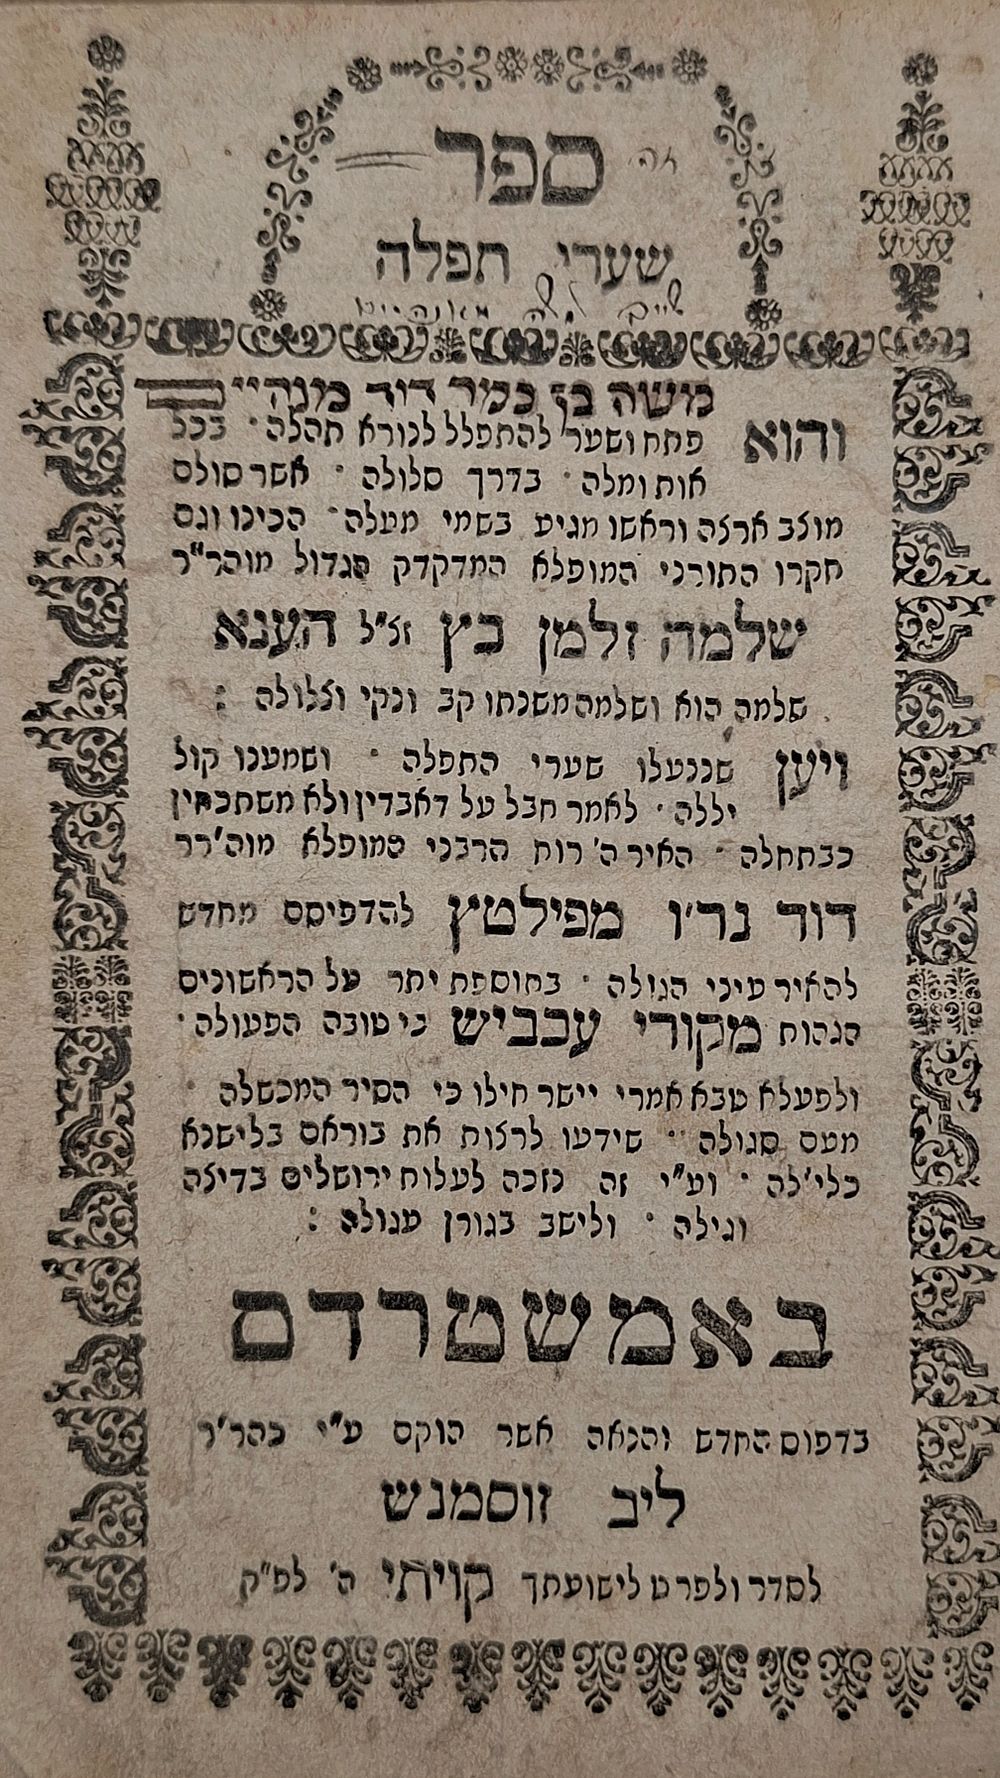 ספר
שערי תפלה
משה בן כמר דוד מנהיים
והוא פתח ושער להתפלל לנורא תהלה · בכל
אות ומלה · בדרך סלולה · אשר סולם
מוצב ארצה וראשו מגיע בשמי מעלה · הכינו וגם
חקרו התורני המופלא המדקדק הגדול מוהר״ר
שלמה זלמן כץ זצ״ל הענא
שלמה הוא ושלמה משנתו קב ונקי וצלולה :
ויען שננעלו שערי התפלה · ושמענו קול
יללה · לאמר חבל על דאבדין ולא משתכחין
כבתחלה · האיר ה׳ רוח הרבני המופלא מוה׳רר
דוד נר׳ו מפילטץ להדפיסם מחדש
להאיר עיני הגולה · בתוספת יתר על הראשונים
הגהות מקורי עכביש כי טובה הפעולה ·
ולפעלא טבא אמרי יישר חילו כי הסיר המכשלה
מעם סגולה · שידעו לרצות את בוראם בלישנא
כלי׳לה · וע״י זה נזכה לעלות ירושלים בדיצה
וגילה · ולישב בגורן עגולה :
באמשטרדם
בדפוס החדש והנאה אשר הוקם ע״י כהר׳ר
ליב זוסמנש
לסדר ולפרט לישועתך קויתי ה׳ לפ״ק